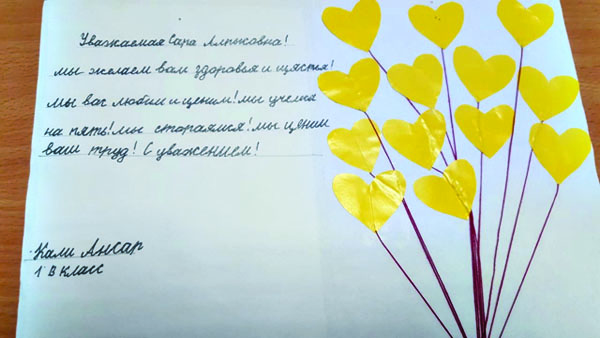 Уважаемая Сара Алржовна!
мы желаем вам здоровья и щястья!
мы вас любим и ценим! мы учемся
на пять! мы стораямся! мы ценим
ваш труд! С уважением!
Кали Ансар
1 В класс